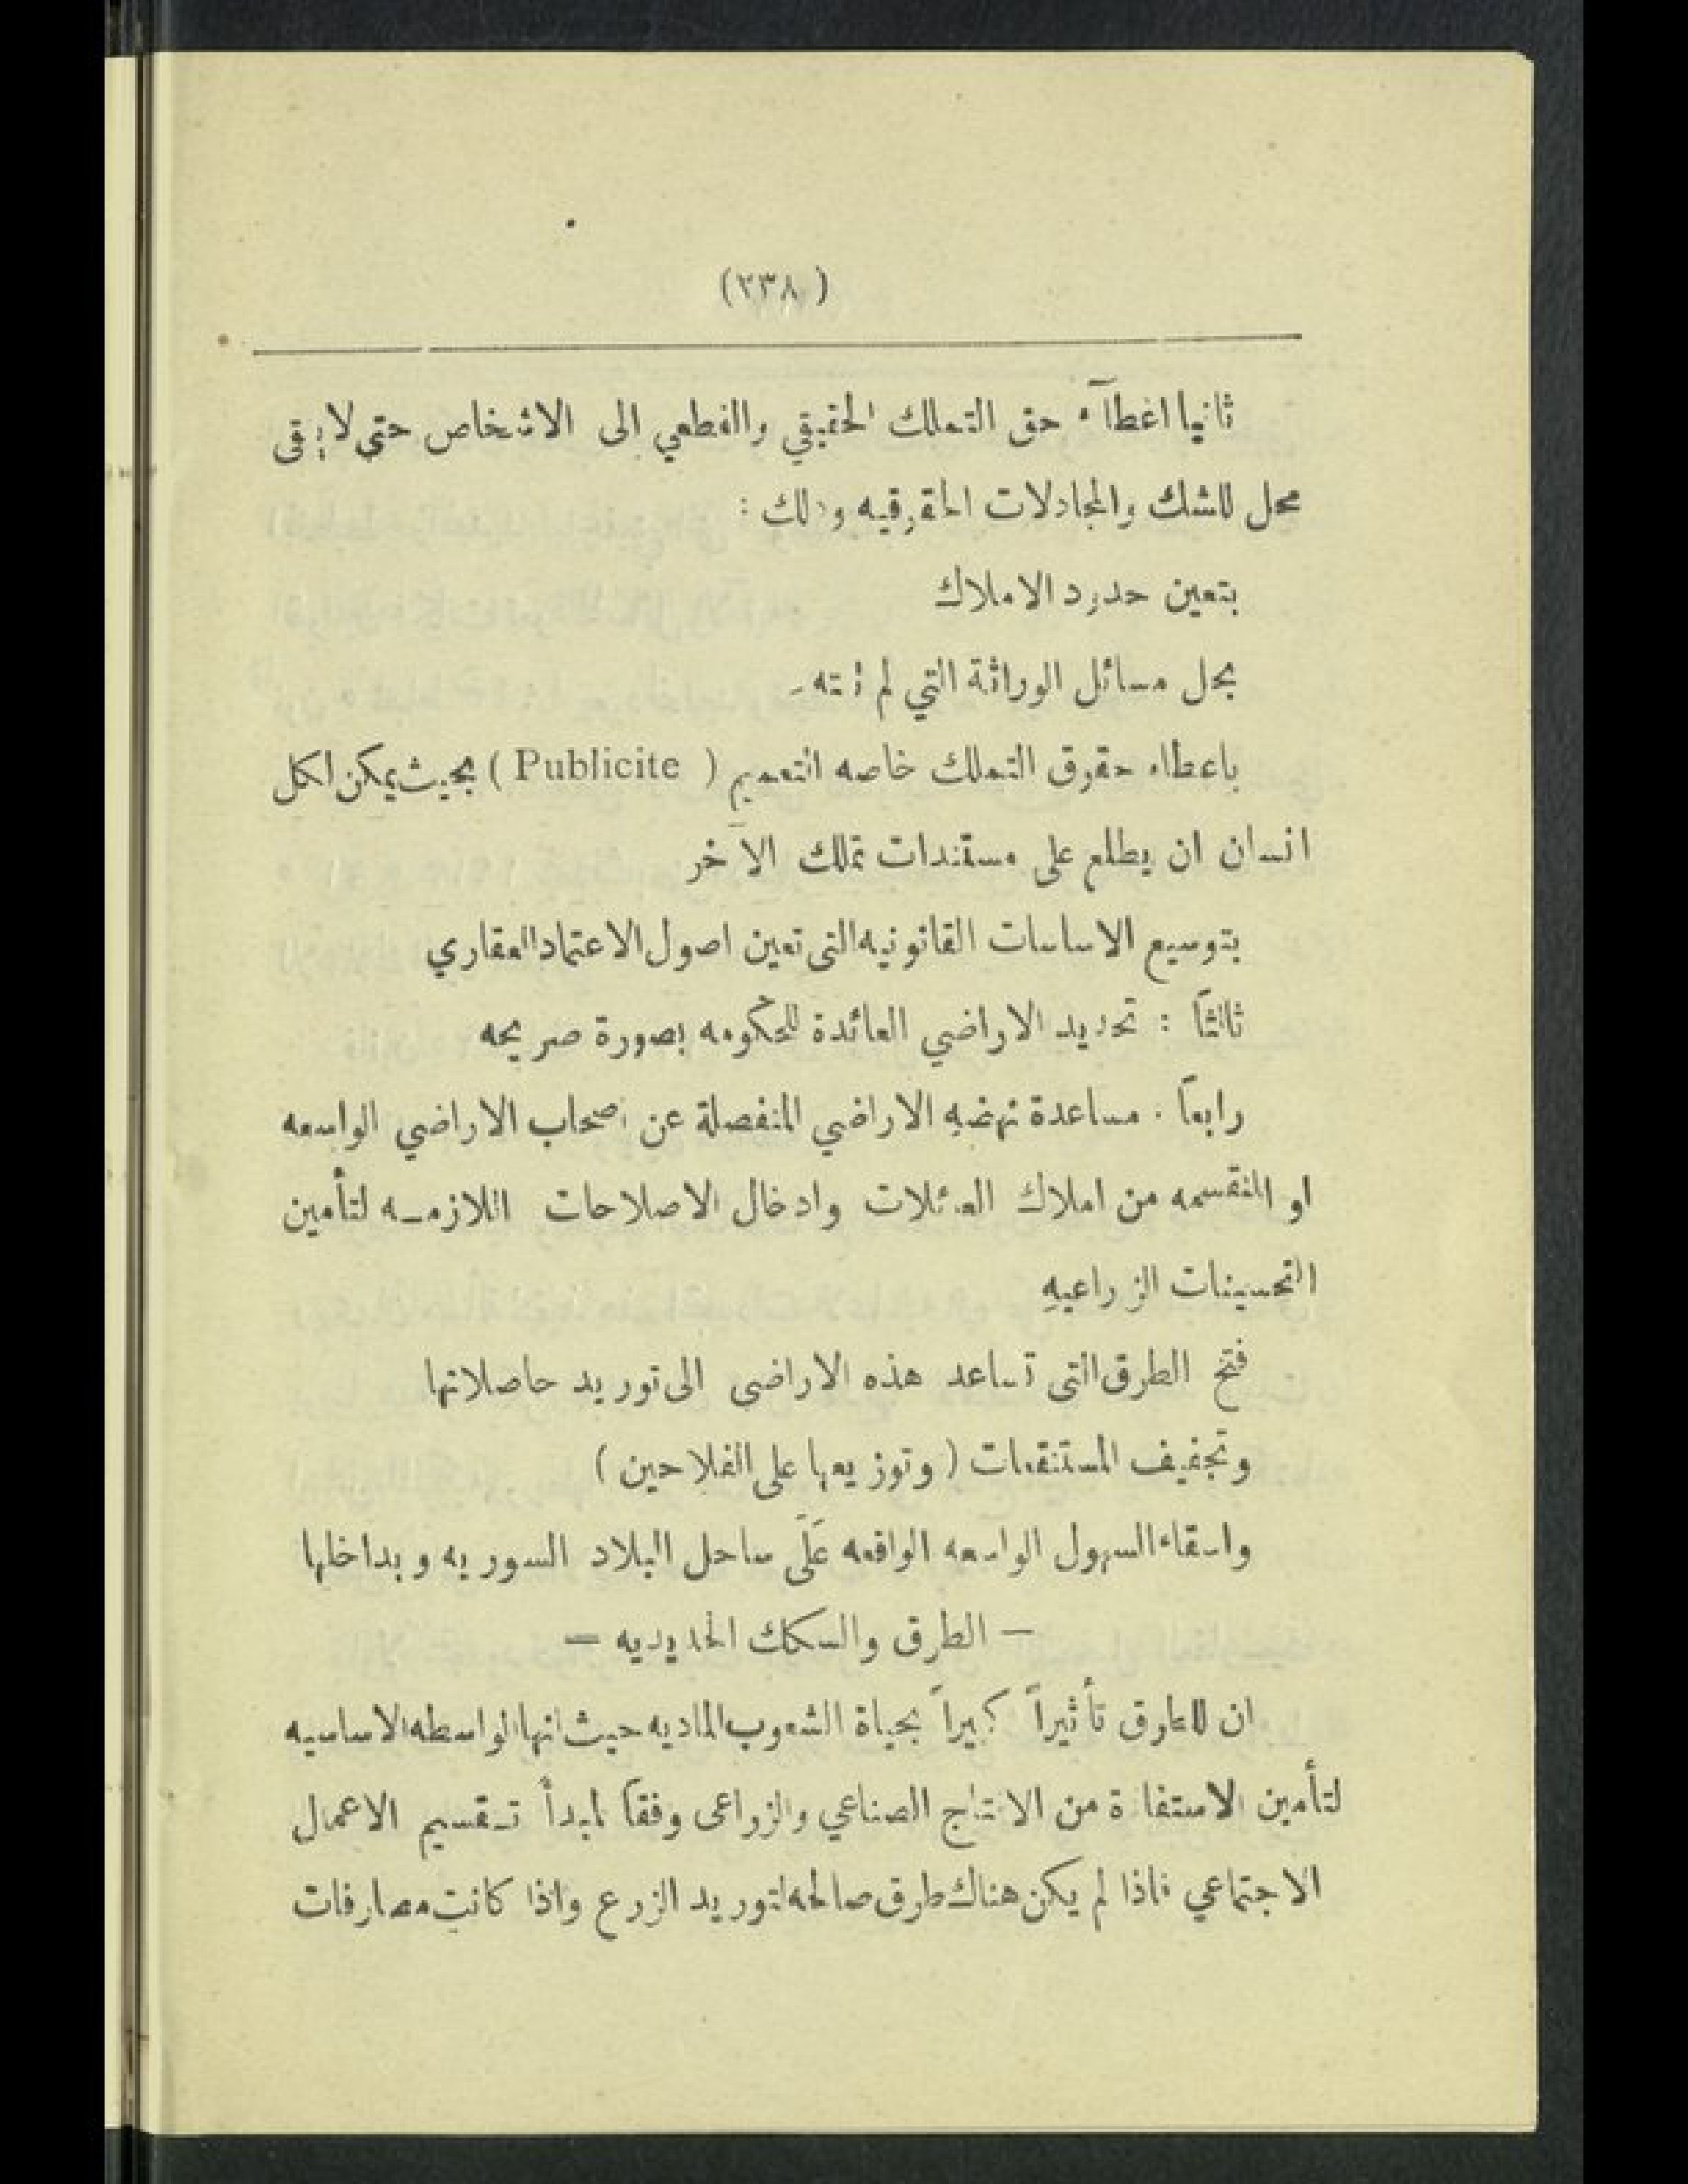 (٢٣٨)
ثانيا اعطآء حق التملك الحقيقي والقطعي الى الاشخاص حتى لا يبقى
محل للشك والمجادلات الحقوقيه وذلك :
بتعين حدود الاملاك
بحل مسائل الوراثة التي لم تنته
باعطاء حقوق التملك خاصه التعميم ( Publicite ) بحيث يمكن لكل
انسان ان يطلع على مستندات تملك الآخر
بتوسيع الاساسات القانونيه التى تعين اصول الاعتماد العقاري
ثالثاً : تحديد الاراضي العائدة للحكومه بصورة صريحه
رابعاً . مساعدة نهضه الاراضي المنفصلة عن اصحاب الاراضي الواسعه
او المنقسمه من املاك العائلات وادخال الاصلاحات اللازمـه لتأمين
التحسينات الزراعيه
فتح الطرق التى تساعد هذه الاراضى الى توريد حاصلاتها
وتجفيف المستنقعات ( وتوزيعها على الفلاحين )
واسقاء السهول الواسعه الواقعه عَلَى ساحل البلاد السوريه وبداخلها
— الطرق والسكك الحديديه —
ان للطرق تأثيراً كبيراً بحياة الشعوب الماديه حيث انها الواسطه الاساسيه
لتأمين الاستفادة من الانتاج الصناعي والزراعى وفقاً لمبدأ تـقسيم الاعمال
الاجتماعي فاذا لم يكن هناك طرق صالحه لتوريد الزرع واذا كانت مصارفات